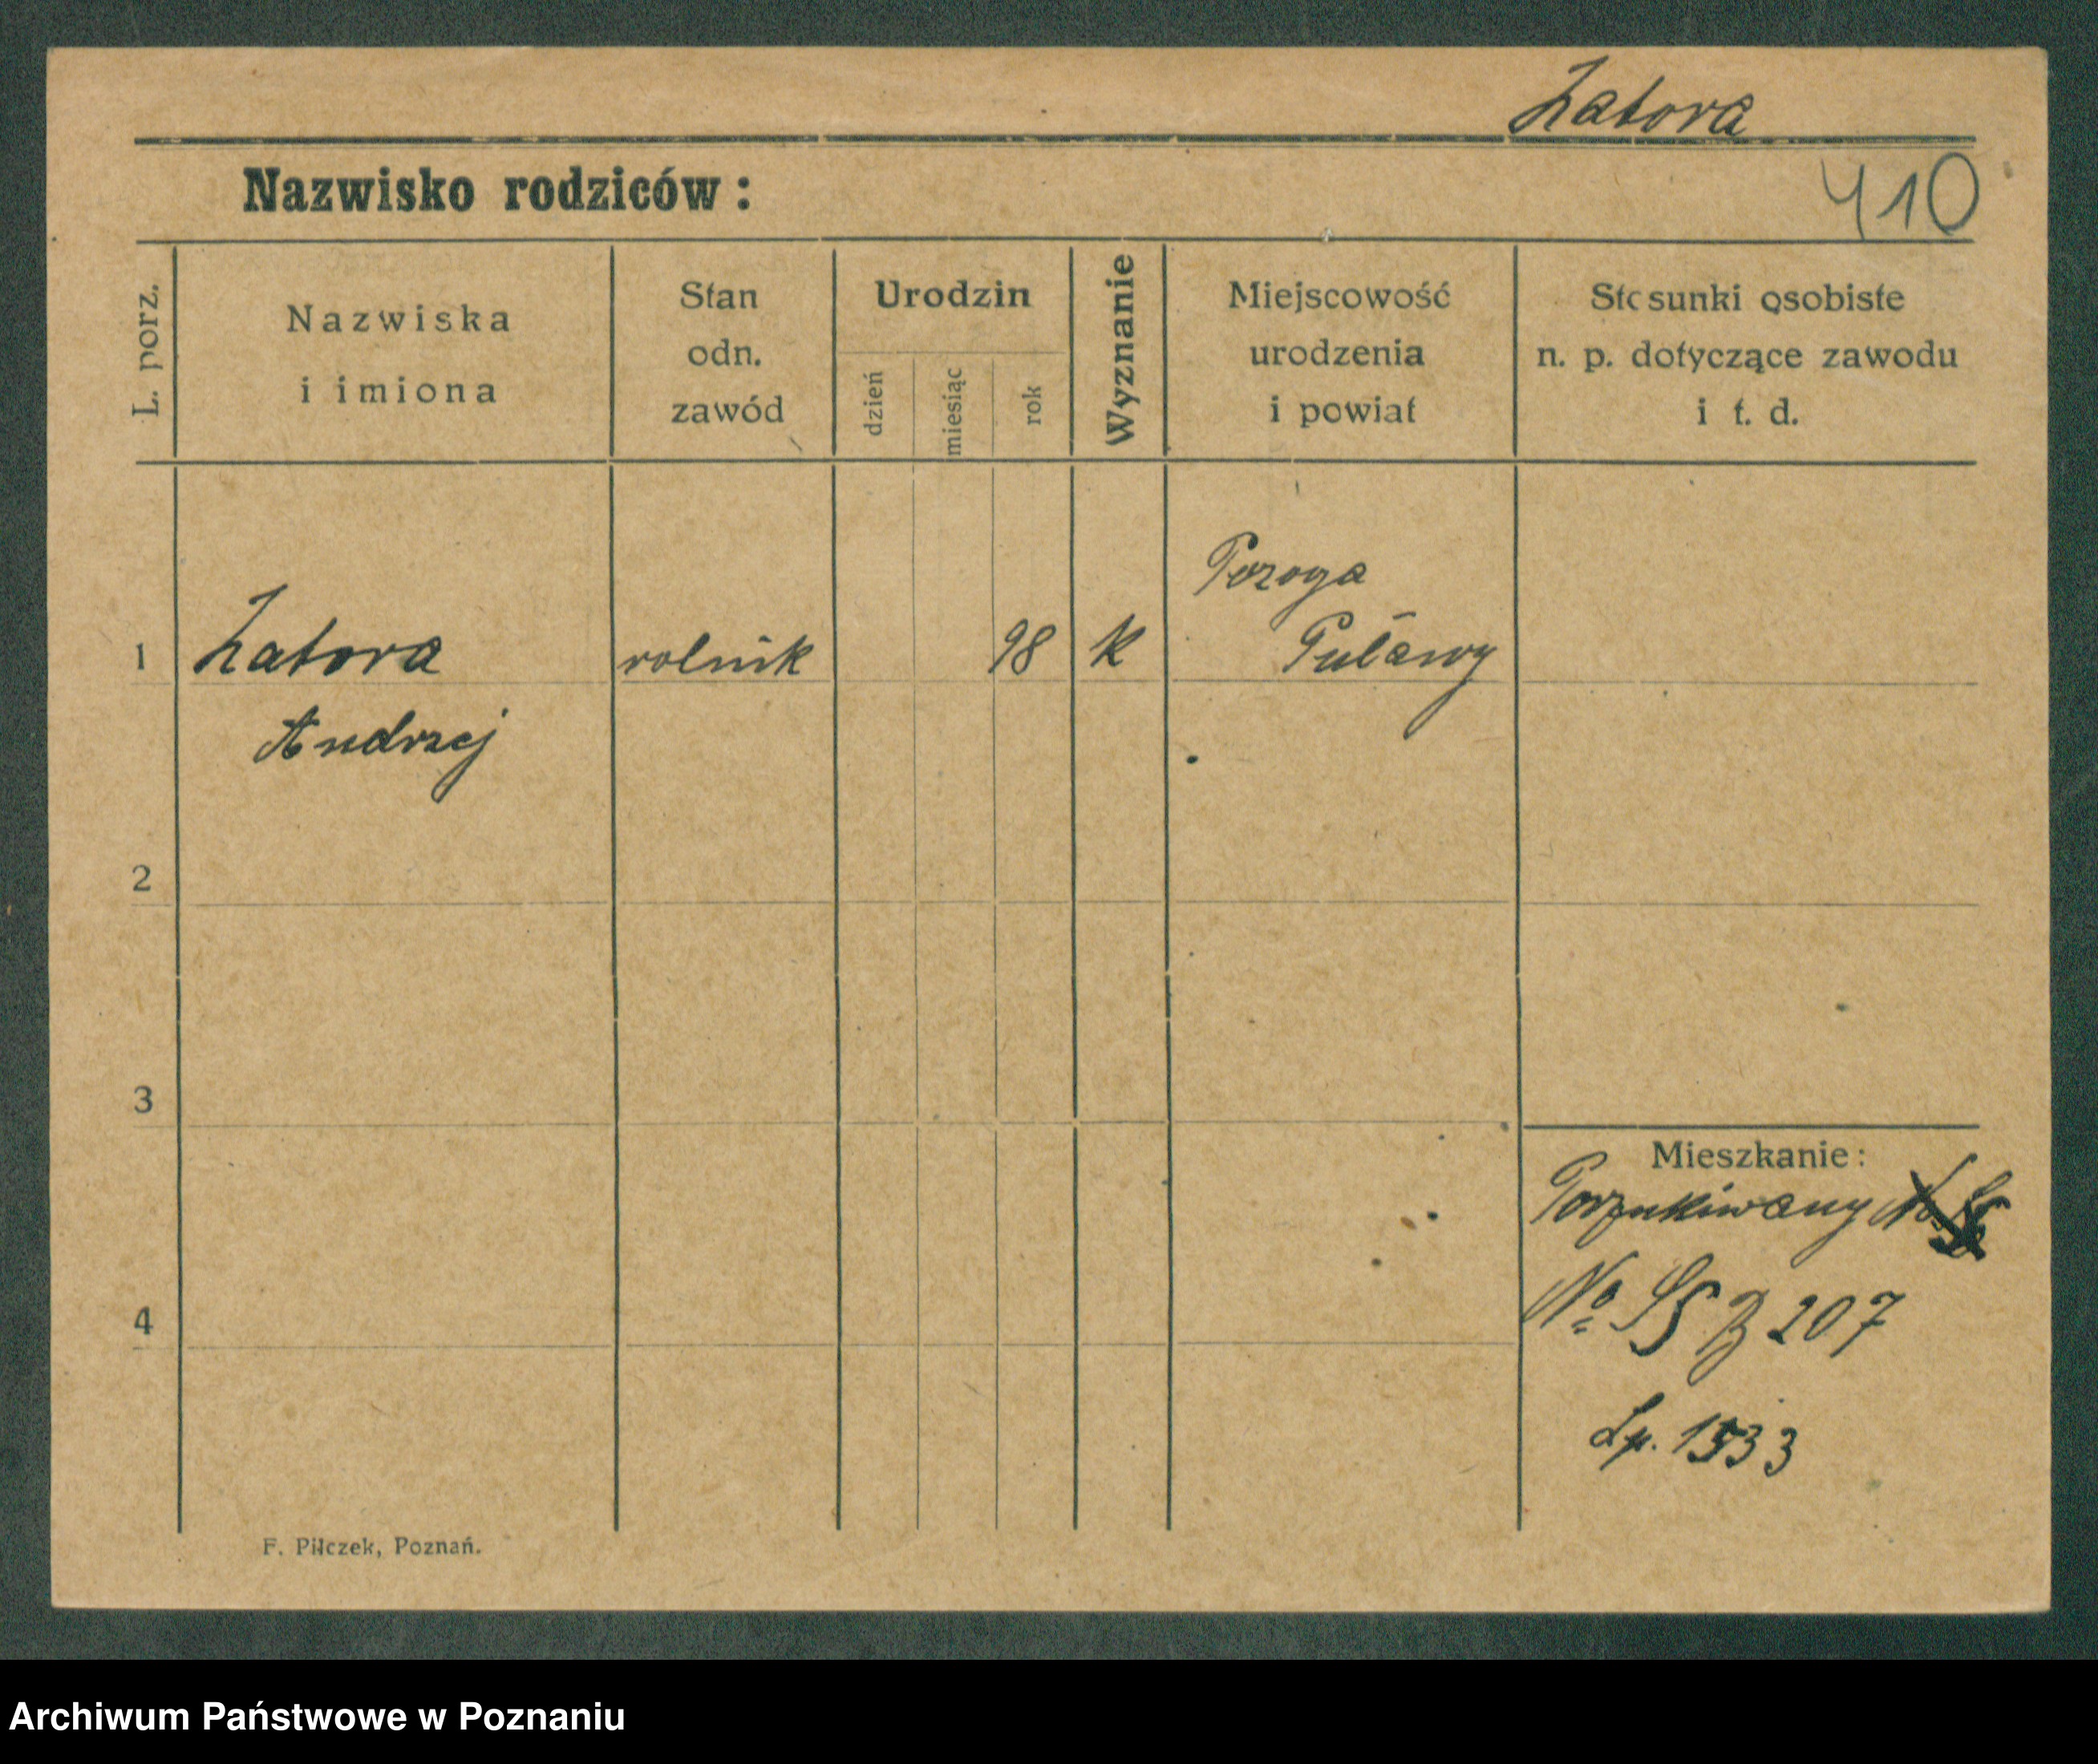 Zatora
Nazwisko rodziców:
410
L. porz.
Nazwiska
i imiona
Stan
odn.
zawód
Urodzin
dzień
miesiąc
rok
Wyznanie
Miejscowość
urodzenia
i powiat
Stosunki osobiste
n. p. dotyczące zawodu
i t. d.
1 Zatora rolnik 98 k Poroga
Puławy
Andrzej
2
3
4
Mieszkanie:
Poszukiwany
No 207
Lp. 1533
F. Pilczek, Poznań.
Archiwum Państwowe w Poznaniu